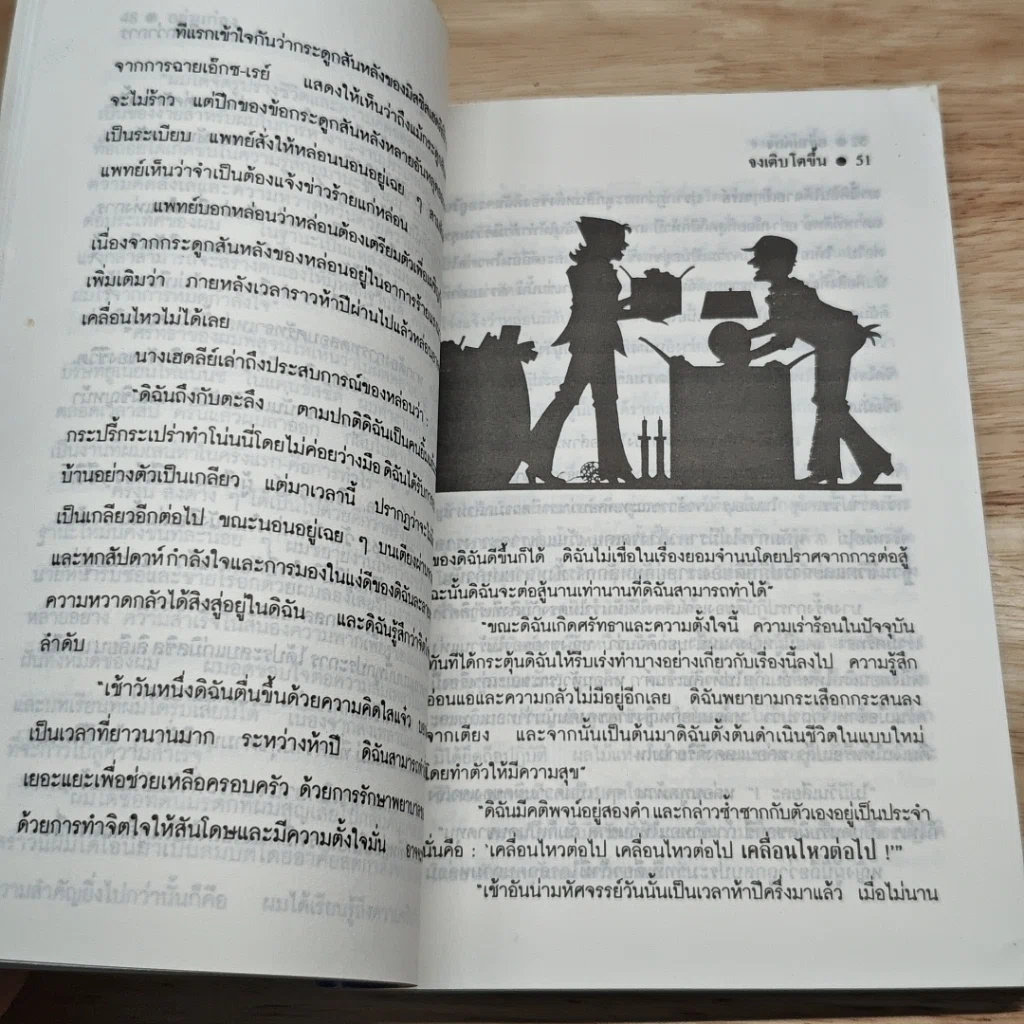 ทีแรกเข้าใจกันว่ากระดูกสันหลังของมิลซิล
จากการฉายเอ็กซ-เรย์ แสดงให้เห็นว่าถึงแม้กระดูก
จะไม่ร้าว แต่ปีกของข้อกระดูกสันหลังหลายอัน
เป็นระเบียบ แพทย์สั่งให้หล่อนนอนอยู่เฉย ๆ
แพทย์เห็นว่าจำเป็นต้องแจ้งข่าวร้ายแก่หล่อน
แพทย์บอกหล่อนว่าหล่อนต้องเตรียมตัวเพื่อ
เนื่องจากกระดูกสันหลังของหล่อนอยู่ในอาการร้ายแรง
เพิ่มเติมว่า ภายหลังเวลาราวห้าปีผ่านไปแล้วหล่อน
เคลื่อนไหวไม่ได้เลย
นางเฮดลีย์เล่าถึงประสบการณ์ของหล่อนว่า :
"ดิฉันถึงกับตะลึง ตามปกติดิฉันเป็นคน
กระปรี้กระเปร่าทำโน่นนี่โดยไม่ค่อยว่างมือ ดิฉันได้รับ
บ้านอย่างตัวเป็นเกลียว แต่มาเวลานี้ ปรากฏว่า
เป็นเกลียวอีกต่อไป ขณะนอนอยู่เฉย ๆ บนเตียงผ่าน
และหกสัปดาห์ กำลังใจและการมองในแง่ดีของดิฉัน
ความหวาดกลัวได้สิงสู่อยู่ในดิฉัน และดิฉันรู้สึกว่า
ลำดับ
"เช้าวันหนึ่งดิฉันตื่นขึ้นด้วยความคิดใสแจ๋ว
เป็นเวลาที่ยาวนานมาก ระหว่างห้าปี ดิฉันสามารถ
เยอะแยะเพื่อช่วยเหลือครอบครัว ด้วยการรักษาพยาบาล
ด้วยการทำจิตใจให้สันโดษและมีความตั้งใจมั่น
จงเติบโตขึ้น ● 51
ของดิฉันดีขึ้นก็ได้ ดิฉันไม่เชื่อในเรื่องยอมจำนนโดยปราศจากการต่อสู้
ฉะนั้นดิฉันจะต่อสู้นานเท่านานที่ดิฉันสามารถทำได้"
"ขณะดิฉันเกิดศรัทธาและความตั้งใจนี้ ความเร่าร้อนในปัจจุบัน
ทันทีได้กระตุ้นดิฉันให้รีบเร่งทำบางอย่างเกี่ยวกับเรื่องนี้ลงไป ความรู้สึก
อ่อนแอและความกลัวไม่มีอยู่อีกเลย ดิฉันพยายามกระเสือกกระสนลง
จากเตียง และจากนั้นเป็นต้นมาดิฉันตั้งต้นดำเนินชีวิตในแบบใหม่
โดยทำตัวให้มีความสุข"
"ดิฉันมีคติพจน์อยู่สองคำ และกล่าวซ้ำซากกับตัวเองอยู่เป็นประจำ
นั่นคือ : 'เคลื่อนไหวต่อไป เคลื่อนไหวต่อไป เคลื่อนไหวต่อไป !'"
"เช้าอันน่ามหัศจรรย์วันนั้นเป็นเวลาห้าปีครึ่งมาแล้ว เมื่อไม่นาน